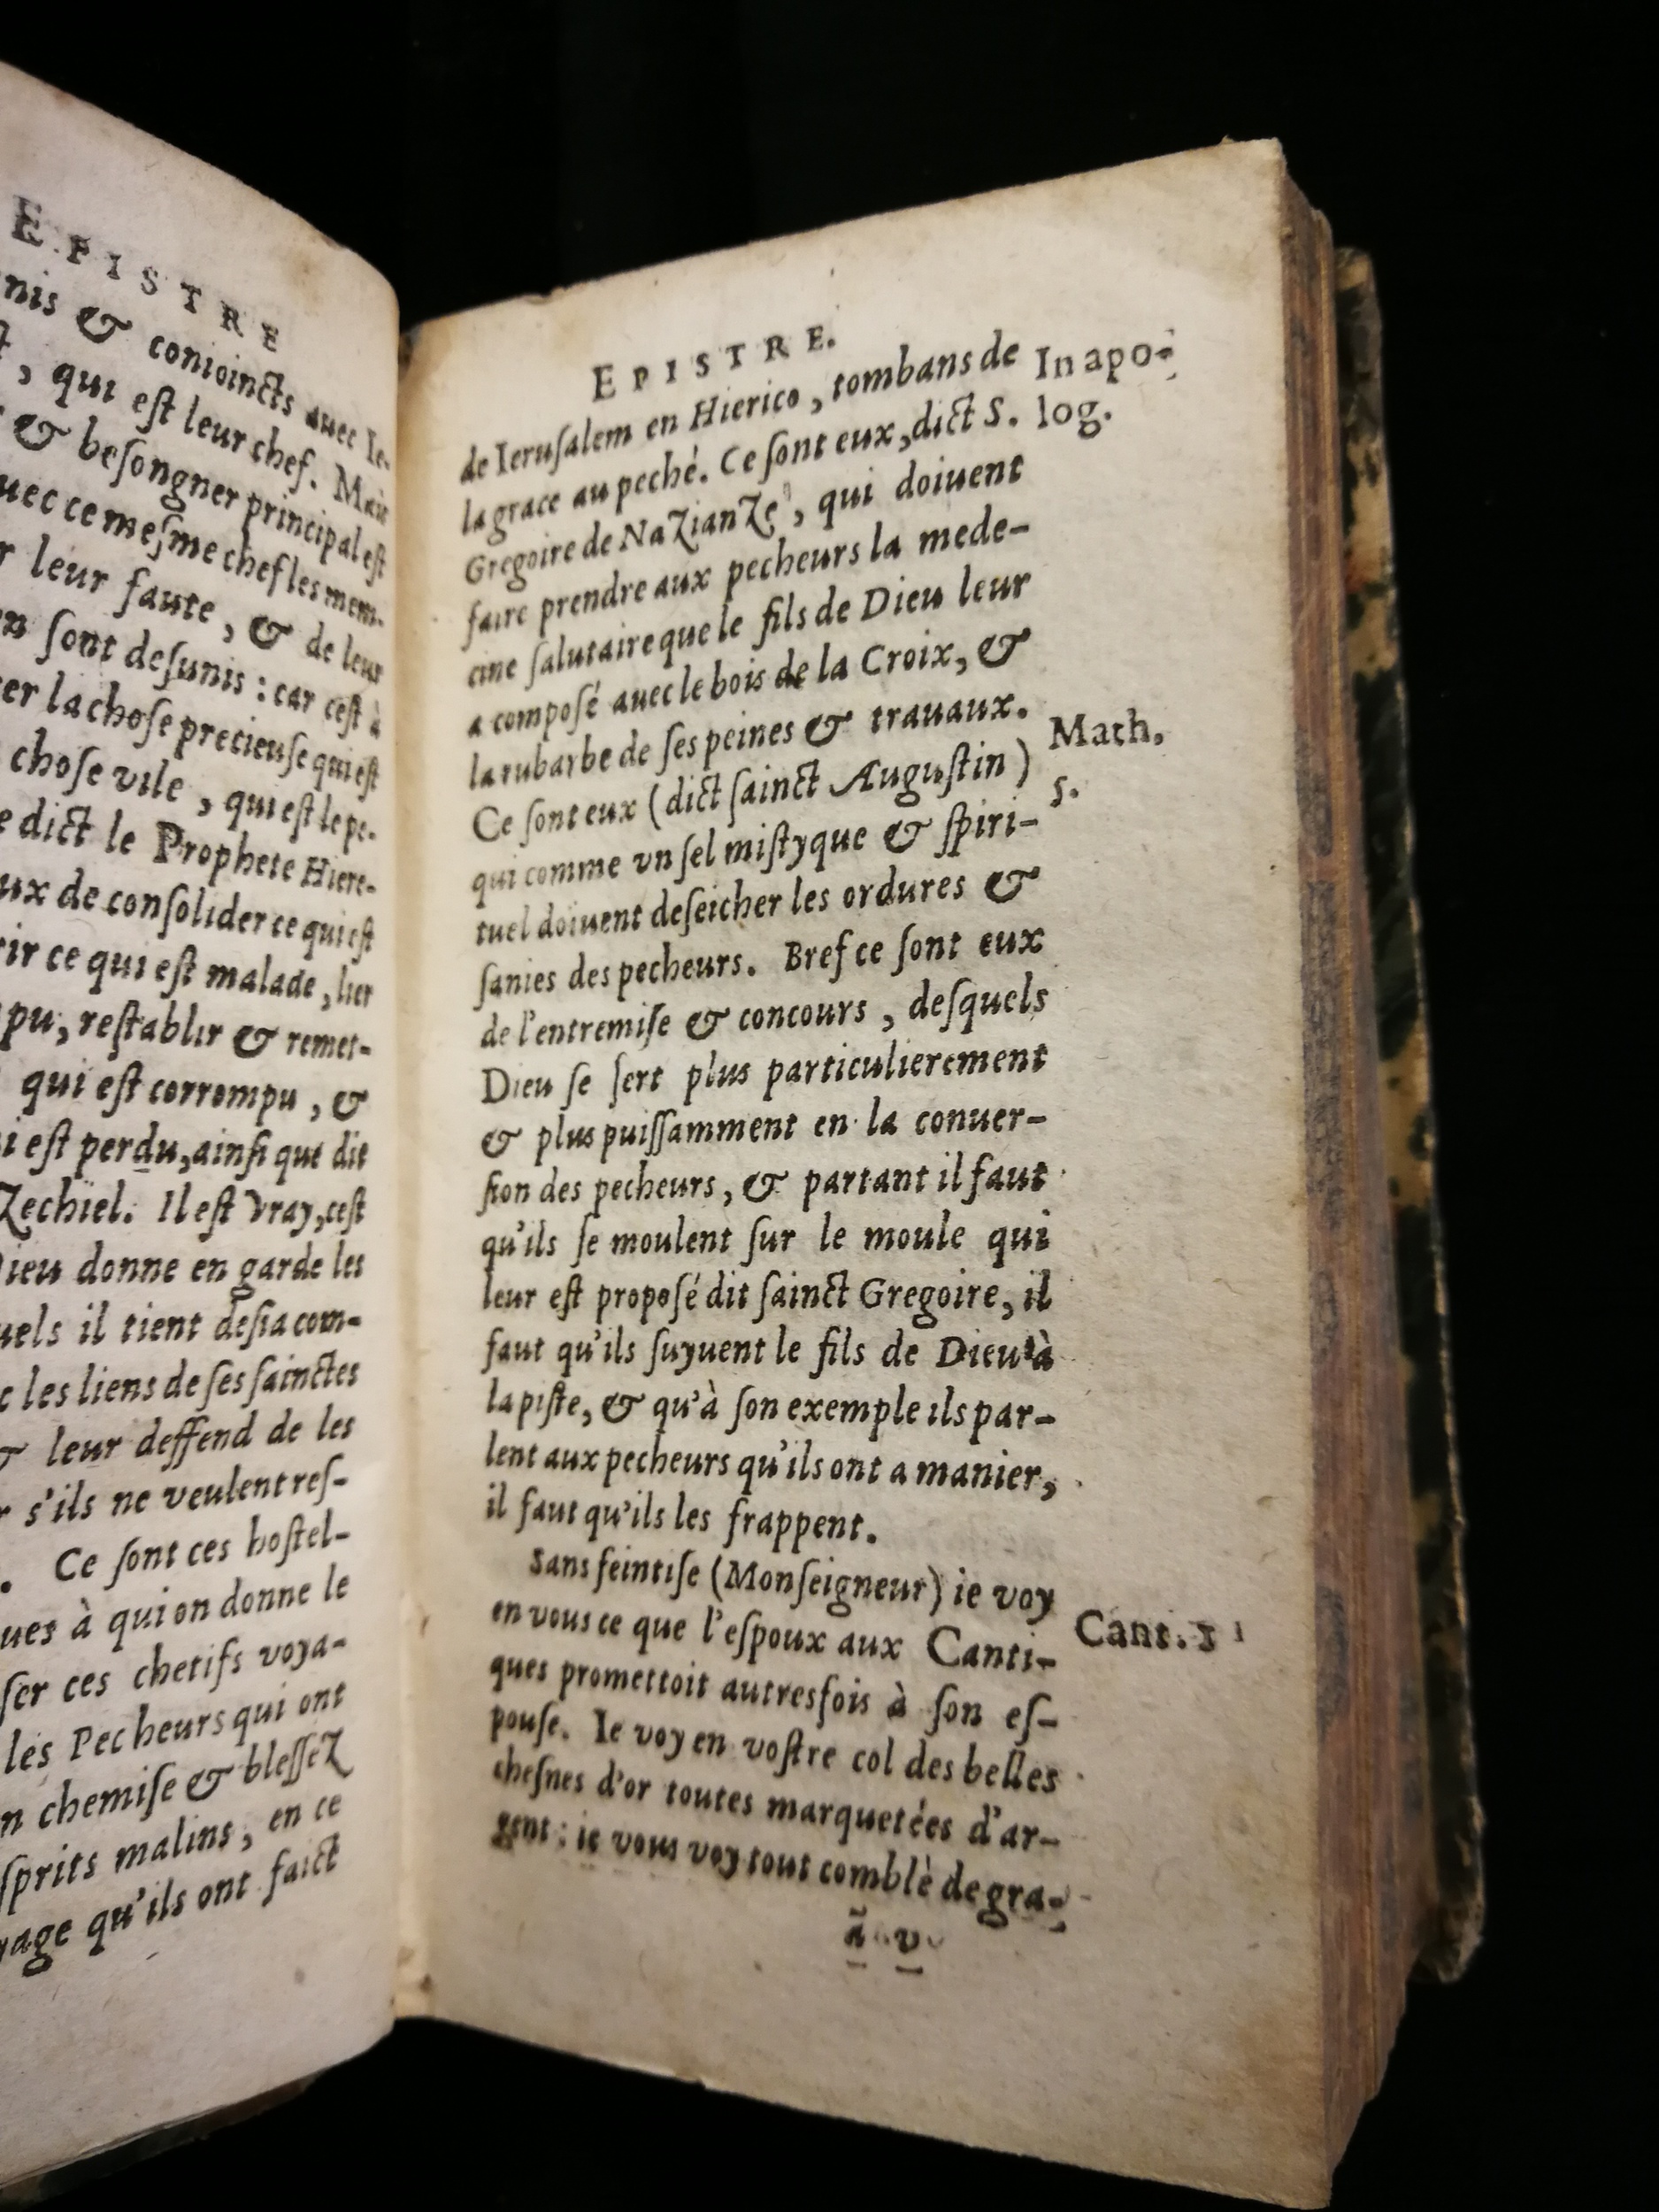 EPISTRE
nis & conioincts auec Ie-
, qui est leur chef. Mais
& besongner principal est
uec ce mesme chef les mem-
leur faute, & de leur
sont desunis : car cest à
er la chose precieuse qui est
chose vile, qui est le pe-
dict le Prophete Hiere-
ux de consolider ce qui est
rir ce qui est malade, lier
pu, restablir & remet-
qui est corrompu, &
i est perdu, ainsi que dit
Zechiel. Il est vray, cest
Dieu donne en garde les
uels il tient desia com-
les liens de ses sainctes
leur deffend de les
s'ils ne veulent res-
. Ce sont ces hostel-
ues à qui on donne le
ser ces chetifs voya-
les Pecheurs qui ont
n chemise & blessez
sprits malins, en ce
yage qu'ils ont faict
EPISTRE.
de Ierusalem en Hierico, tombans de
la grace au peché. Ce sont eux, dict S.
Gregoire de Nazianze, qui doiuent
faire prendre aux pecheurs la mede-
cine salutaire que le fils de Dieu leur
a composé auec le bois de la Croix, &
la rubarbe de ses peines & trauaux.
Ce sont eux (dict sainct Augustin)
qui comme vn sel mistyque & spiri-
tuel doiuent deseicher les ordures &
sanies des pecheurs. Bref ce sont eux
de l'entremise & concours, desquels
Dieu se sert plus particulierement
& plus puissamment en la conuer-
sion des pecheurs, & partant il faut
qu'ils se moulent sur le moule qui
leur est proposé dit sainct Gregoire, il
faut qu'ils suyuent le fils de Dieu à
la piste, & qu'à son exemple ils par-
lent aux pecheurs qu'ils ont a manier,
il faut qu'ils les frappent.
Sans feintise (Monseigneur) ie voy
en vous ce que l'espoux aux Canti-
ques promettoit autresfois à son es-
pouse. Ie voy en vostre col des belles
chesnes d'or toutes marquetées d'ar-
gent : ie vous voy tout comblè de gra-
ã v
In apo-
log.
Math.
5.
Cant. 1